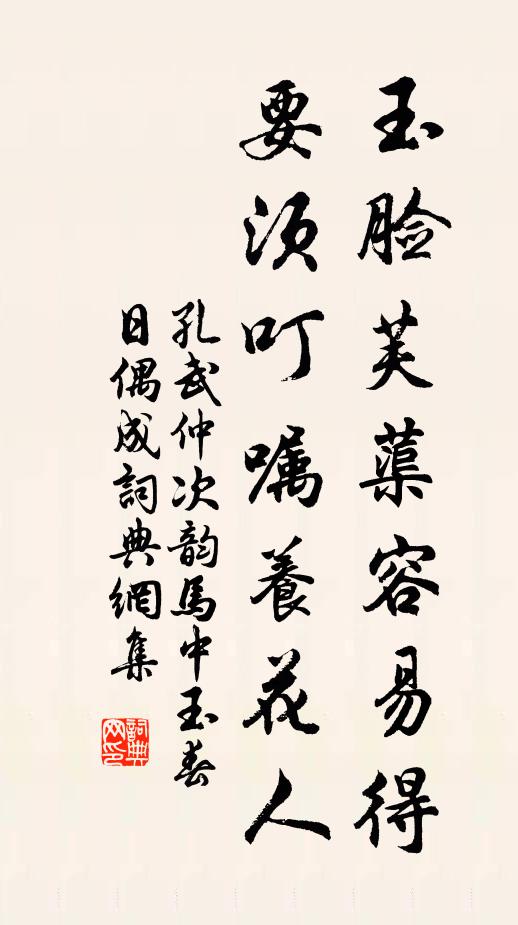 玉脸芙蕖容易得
要须叮嘱養花人
孔武仲次韵馬中玉春
日偶成詞典網集
詞典网印